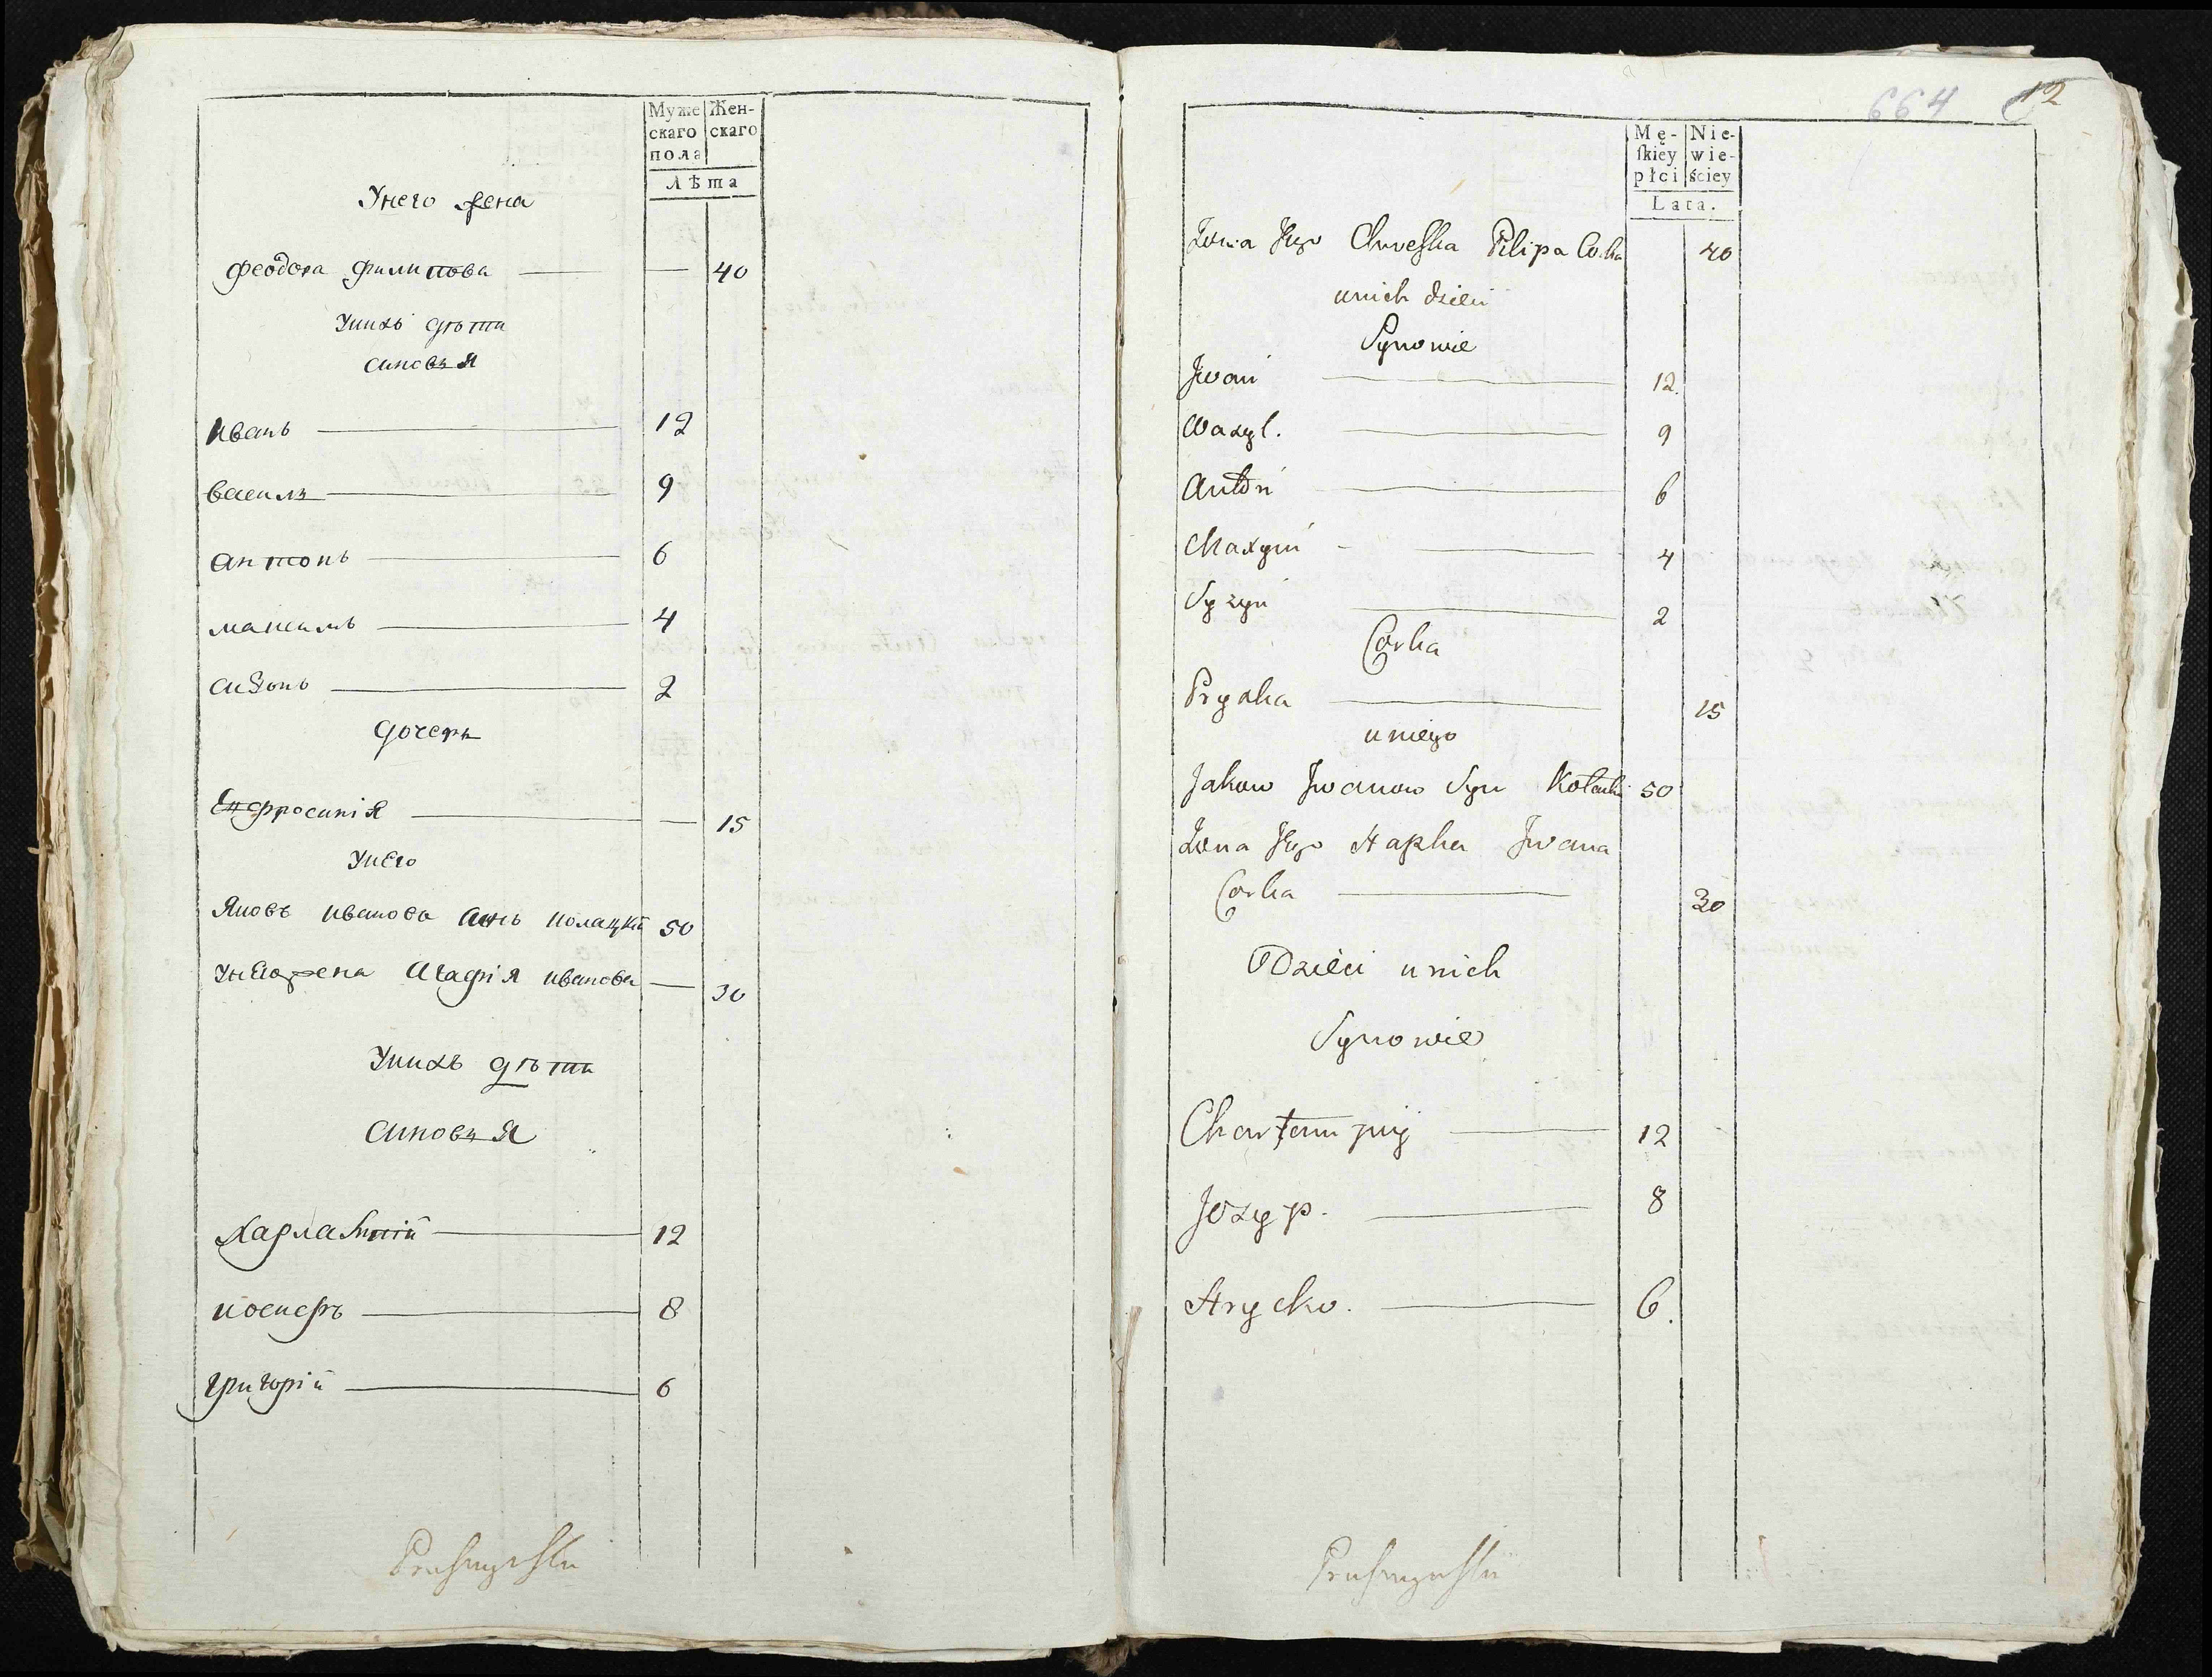 Муже
скаго
пола
Жен-
скаго
Лѣта
Унего жена
Феодора Филипова — — 40
Унихъ дѣти
синовья
Иванъ — 12
василь — 9
антонъ — 6
максимъ — 4
сизонъ — 2
дочерь
Ефросинія — — 15
Унего
Яковъ ивановъ синъ 50
Унего жена Агафія иванова — 30
Унихъ дѣти
синовья
Харлампій — 12
иосифъ — 8
григорій — 6
664 12
Mę-
ſkiey
płci
Nie-
wie-
ściey
Lata.
Żona Jego Pilipa Corka 40
unich dzieci
Synowie
Jwan — 12.
Wasyl. — 9
Anton — 6
Maxym — 4
Syzyn — 2
Corka
Pryska — 15
uniego
Jakow Jwanow Syn 50
Żona Jego Hapka Jwana
Corka — 30
Dzieci unich
Synowie
Charłampiy — 12
Jozyp. — 8
Hrycko. — 6.